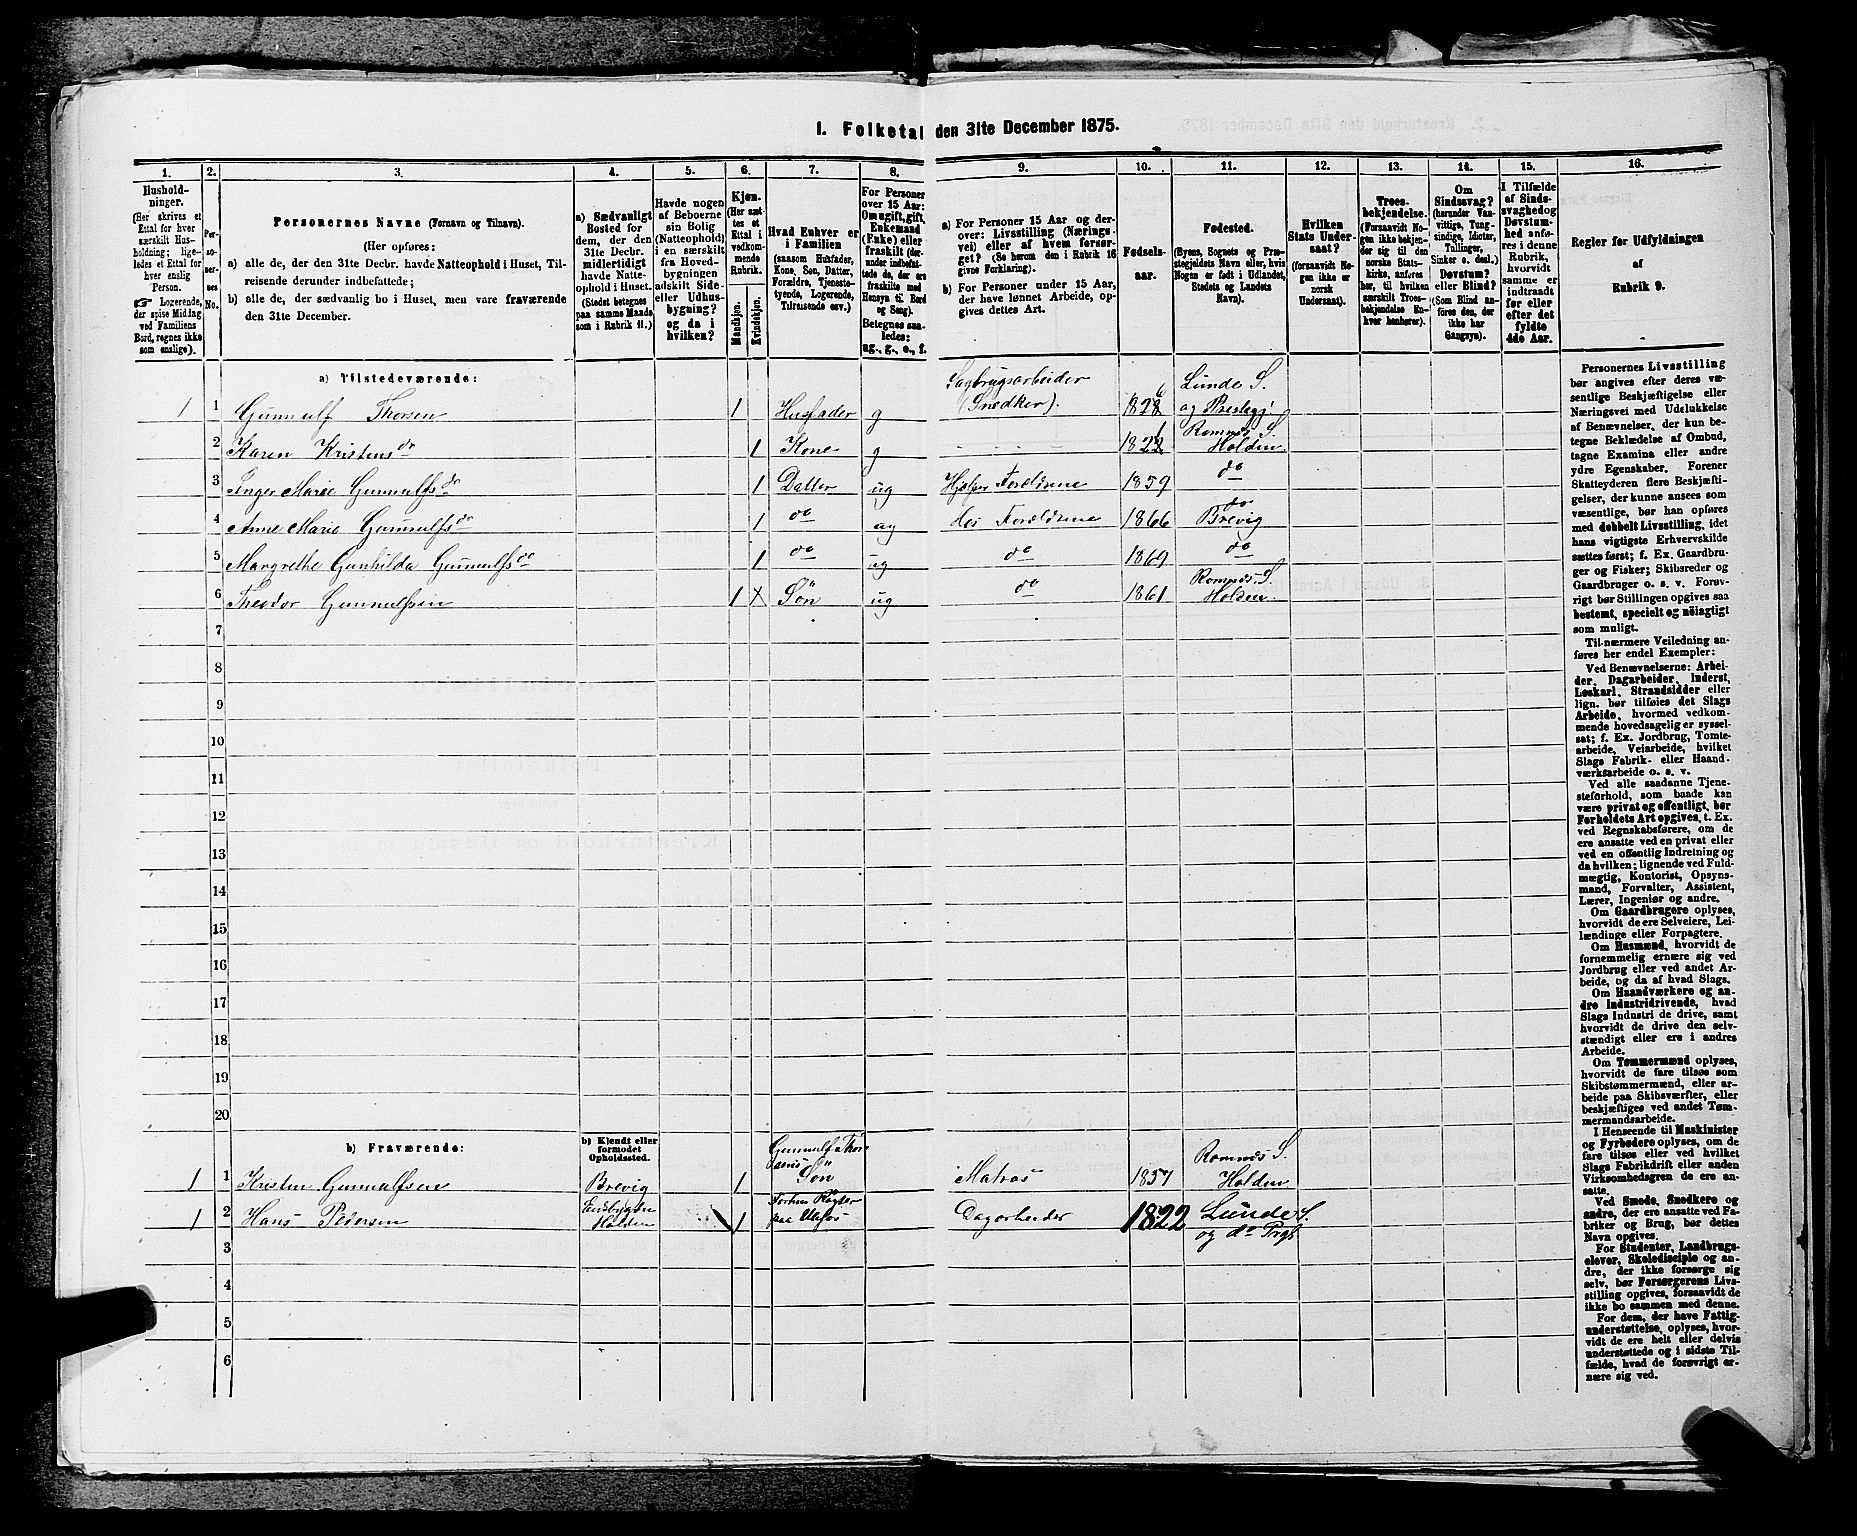 I. Folketal den 31te December 1875.
1.
Hushold-
ninger.
(Her skrives et
Ettal for hver
særskilt Hus-
holdning; lige-
ledes et Ettal for
hver enslig
Person.
☞ Logerende,
der spise Middag
ved Familiens
Bord, regnes ikke
som enslige).
2.
Per-
so-
ner-
nes
No.
3.
Personernes Navne (Fornavn og Tilnavn).
(Her opføres:
a) alle de, der den 31te Decbr. havde Natteophold i Huset, Til-
reisende derunder indbefattede;
b) alle de, der sædvanlig bo i Huset, men vare fraværende
den 31te December.
4.
a) Sædvanligt
Bosted for
dem, der den
31te Decbr.
midlertidigt
havde Natte-
ophold i Huset.
(Stedet betegnes
paa samme Maade
som i Rubrik 11.)
5.
Havde nogen
af Beboerne
sin Bolig
(Natteophold)
i en særskilt
fra Hoved-
bygningen
adskilt Side-
eller Udhus-
bygning?
og da i
hvilken?
6.
Kjøn.
(Her sæt-
tes et
Ettal i
vedkom-
mende
Rubrik.
Mandkjøn.
Kvindekjøn.
7.
Hvad Enhver er
i Familien
(saasom Husfader,
Kone, Søn, Datter,
Forældre, Tjeneste-
tyende, Logerende,
Tilreisende osv.)
8.
For Personer
over 15 Aar:
Om ugift, gift,
Enkemand
(Enke) eller
fraskilt (der-
under indbefat-
tede de, der ere
fraskilte med
Hensyn til Bord
og Seng).
Betegnes saa-
ledes:
ug., g., e., f.
9.
a) For Personer 15 Aar og der-
over: Livsstilling (Nærings-
vei) eller af hvem forsør-
get? (Se herom den i Rubrik 16
givne Forklaring).
b) For Personer under 15 Aar,
der have lønnet Arbeide, op-
gives dettes Art.
10.
Fødsels-
aar.
11.
Fødested.
(Byens, Sognets og Præ-
stegjeldets Navn eller, hvis
Nogen er født i Udlandet,
Stedets og Landets
Navn).
12.
Hvilken
Stats Under-
saat?
(forsaavidt No-
gen ikke er
norsk
Undersaat).
13.
Troes-
bekjendelse.
(Forsaavidt No-
gen ikke bekjen-
der sig til den
norske Stats-
kirke, anføres
her, til hvilken
særskilt Troes-
bekjendelse En-
hver henhører).
14.
Om
Sindssvag?
(herunder Van-
vittige, Tung-
sindige, Idioter,
Tullinger,
Sinker o. desl.)
Døvstum?
eller Blind?
(Som Blind an-
føres den, der
ikke har
Gangsyn).
15.
I Tilfælde
af Sinds-
svaghed og
Døvstum-
hed anfø-
res i denne
Rubrik,
hvorvidt
samme er
indtraadt
før eller
efter det
fyldte
4de Aar.
16.
Regler for Udfyldningen
af
Rubrik 9.
a) Tilstedeværende:
1 1 Gunnulf Thorsen 1 Husfader g Sagbrugsarbeider (Snedker). 1826 Lunde S. og Prestegj.
2 Karen Kristensdr 1 Kone g 1821 Romnes S. Holden
3 Inger Marie Gunnulfsdr 1 Datter ug Hjelper Forældrene 1859 do do
4 Anne Marie Gunnulfsdr 1 do ug Hos Forældrene 1866 Brevig
5 Margrethe Gunhilda Gunnulfsdr 1 do ug do 1869 do
6 Theodor Gunnulfsen 1 Søn ug do 1861 Romnes S. Holden
7
8
9
10
11
12
13
14
15
16
17
18
19
20
b) Fraværende:
b) Kjendt eller
formodet
Opholdssted.
1 1 Kristen Gunnulfsen Brevig 1 Gunnulf Thorsens Søn Matros 1857 Romnes S. Holden
1 2 Hans Pedersen Holden 1 paa Ulefos Dagarbeider 1822 Lunde S. og do Prgj.
3
4
5
6
Personernes Livsstilling
bør angives efter deres væ-
sentlige Beskjæftigelse eller
Næringsvei med Udelukkelse
af Benævnelser, der kun be-
tegne Beklædelse af Ombud,
tagne Examina eller andre
ydre Egenskaber. Forener
Skatteyderen flere Beskjæfti-
gelser, der kunne ansees som
væsentlige, bør han opføres
med dobbelt Livsstilling, idet
hans vigtigste Erhvervskilde
sættes først; f. Ex. Gaardbru-
ger og Fisker; Skibsreder og
Gaardbruger o. s. v. Forøv-
rigt bør Stillingen opgives saa
bestemt, specielt og nøiagtigt
som muligt.
Til nærmere Veiledning an-
føres her endel Exempler:
Ved Benævnelserne: Arbei-
der, Dagarbeider, Inderst,
Løskarl, Strandsidder eller
lign. bør tilføies det Slags
Arbeide, hvormed vedkom-
mende hovedsagelig er syssel-
sat; f. Ex. Jordbrug, Tomte-
arbeide, Veiarbeide, hvilket
Slags Fabrik- eller Haand-
værksarbeide o. s. v.
Ved alle saadanne Tjene-
steforhold, som baade kan
være privat og offentligt, bør
Forholdets Art opgives, t. Ex.
ved Regnskabsførere, om de
ere ansatte ved en privat eller
ved en offentlig Indretning og
da hvilken; lignende ved Fuld-
mægtig, Kontorist, Opsyns-
mand, Forvalter, Assistent,
Lærer, Ingeniør og andre.
Om Gaardbrugere oplyses,
hvorvidt de ere Selveiere, Lei-
lændinge eller Forpagtere.
Om Husmænd, hvorvidt de
fornemmelig ernære sig ved
Jordbrug eller ved andet Ar-
beide, og da af hvad Slags.
Om Haandværkere og an-
dre Industridrivende, hvad
Slags Industri de drive, samt
hvorvidt de drive den selv-
stændigt eller ere i andres
Arbeide.
Om Tømmermænd oplyses,
hvorvidt de fare tilsøs som
Skibstømmermænd, eller ar-
beide paa Skibsværfter, eller
beskjæftiges ved andet Tøm-
mermandsarbeide.
I Henseende til Maskinister
og Fyrbødere oplyses, om de
fare tilsøs eller ved hvilket
Slags Fabrikdrift eller anden
Virksomhedsgren de ere an-
satte.
Ved Smede, Snedkere og
andre, der ere ansatte ved Fa-
briker og Brug, bør dettes
Navn opgives.
For Studenter, Landbrugs-
elever, Skoledisciple og an-
dre, der ikke forsørge sig
selv, bør Forsørgerens Livs-
stilling opgives, forsaavidt de
ikke bo sammen med denne.
For dem, der have Fattig-
understøttelse, oplyses, hvor-
vidt de ere helt eller delvis
understøttede og i sidste Til-
fælde, hvad de forøvrigt er-
nære sig ved.